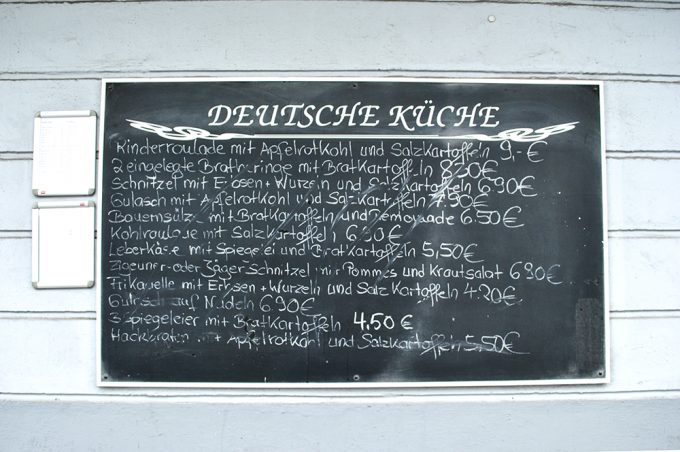 DEUTSCHE KÜCHE
Rinderroulade mit Apfelrotkohl und Salzkartoffeln 9,-€
2 eingelegte Bratheringe mit Bratkartoffeln 8,50€
Schnitzel mit Erbsen + Wurzeln und Salzkartoffeln 6.90€
Gulasch mit Apfelrotkohl und Salzkartoffeln 7.90€
Bauernsülze mit Bratkartoffeln und Remoulade 6.50€
Kohlroulade mit Salzkartoffeln 6.90€
Leberkäse mit Spiegelei und Bratkartoffeln 5,50€
Zigeuner- oder Jägerschnitzel mit Pommes und Krautsalat 6.90€
Frikadelle mit Erbsen + Wurzeln und Salzkartoffeln 4.20€
auf Nudeln 6.90€
3 Spiegeleier mit Bratkartoffeln 4.50€
Hackbraten mit Apfelrotkohl und Salzkartoffeln 5,50€